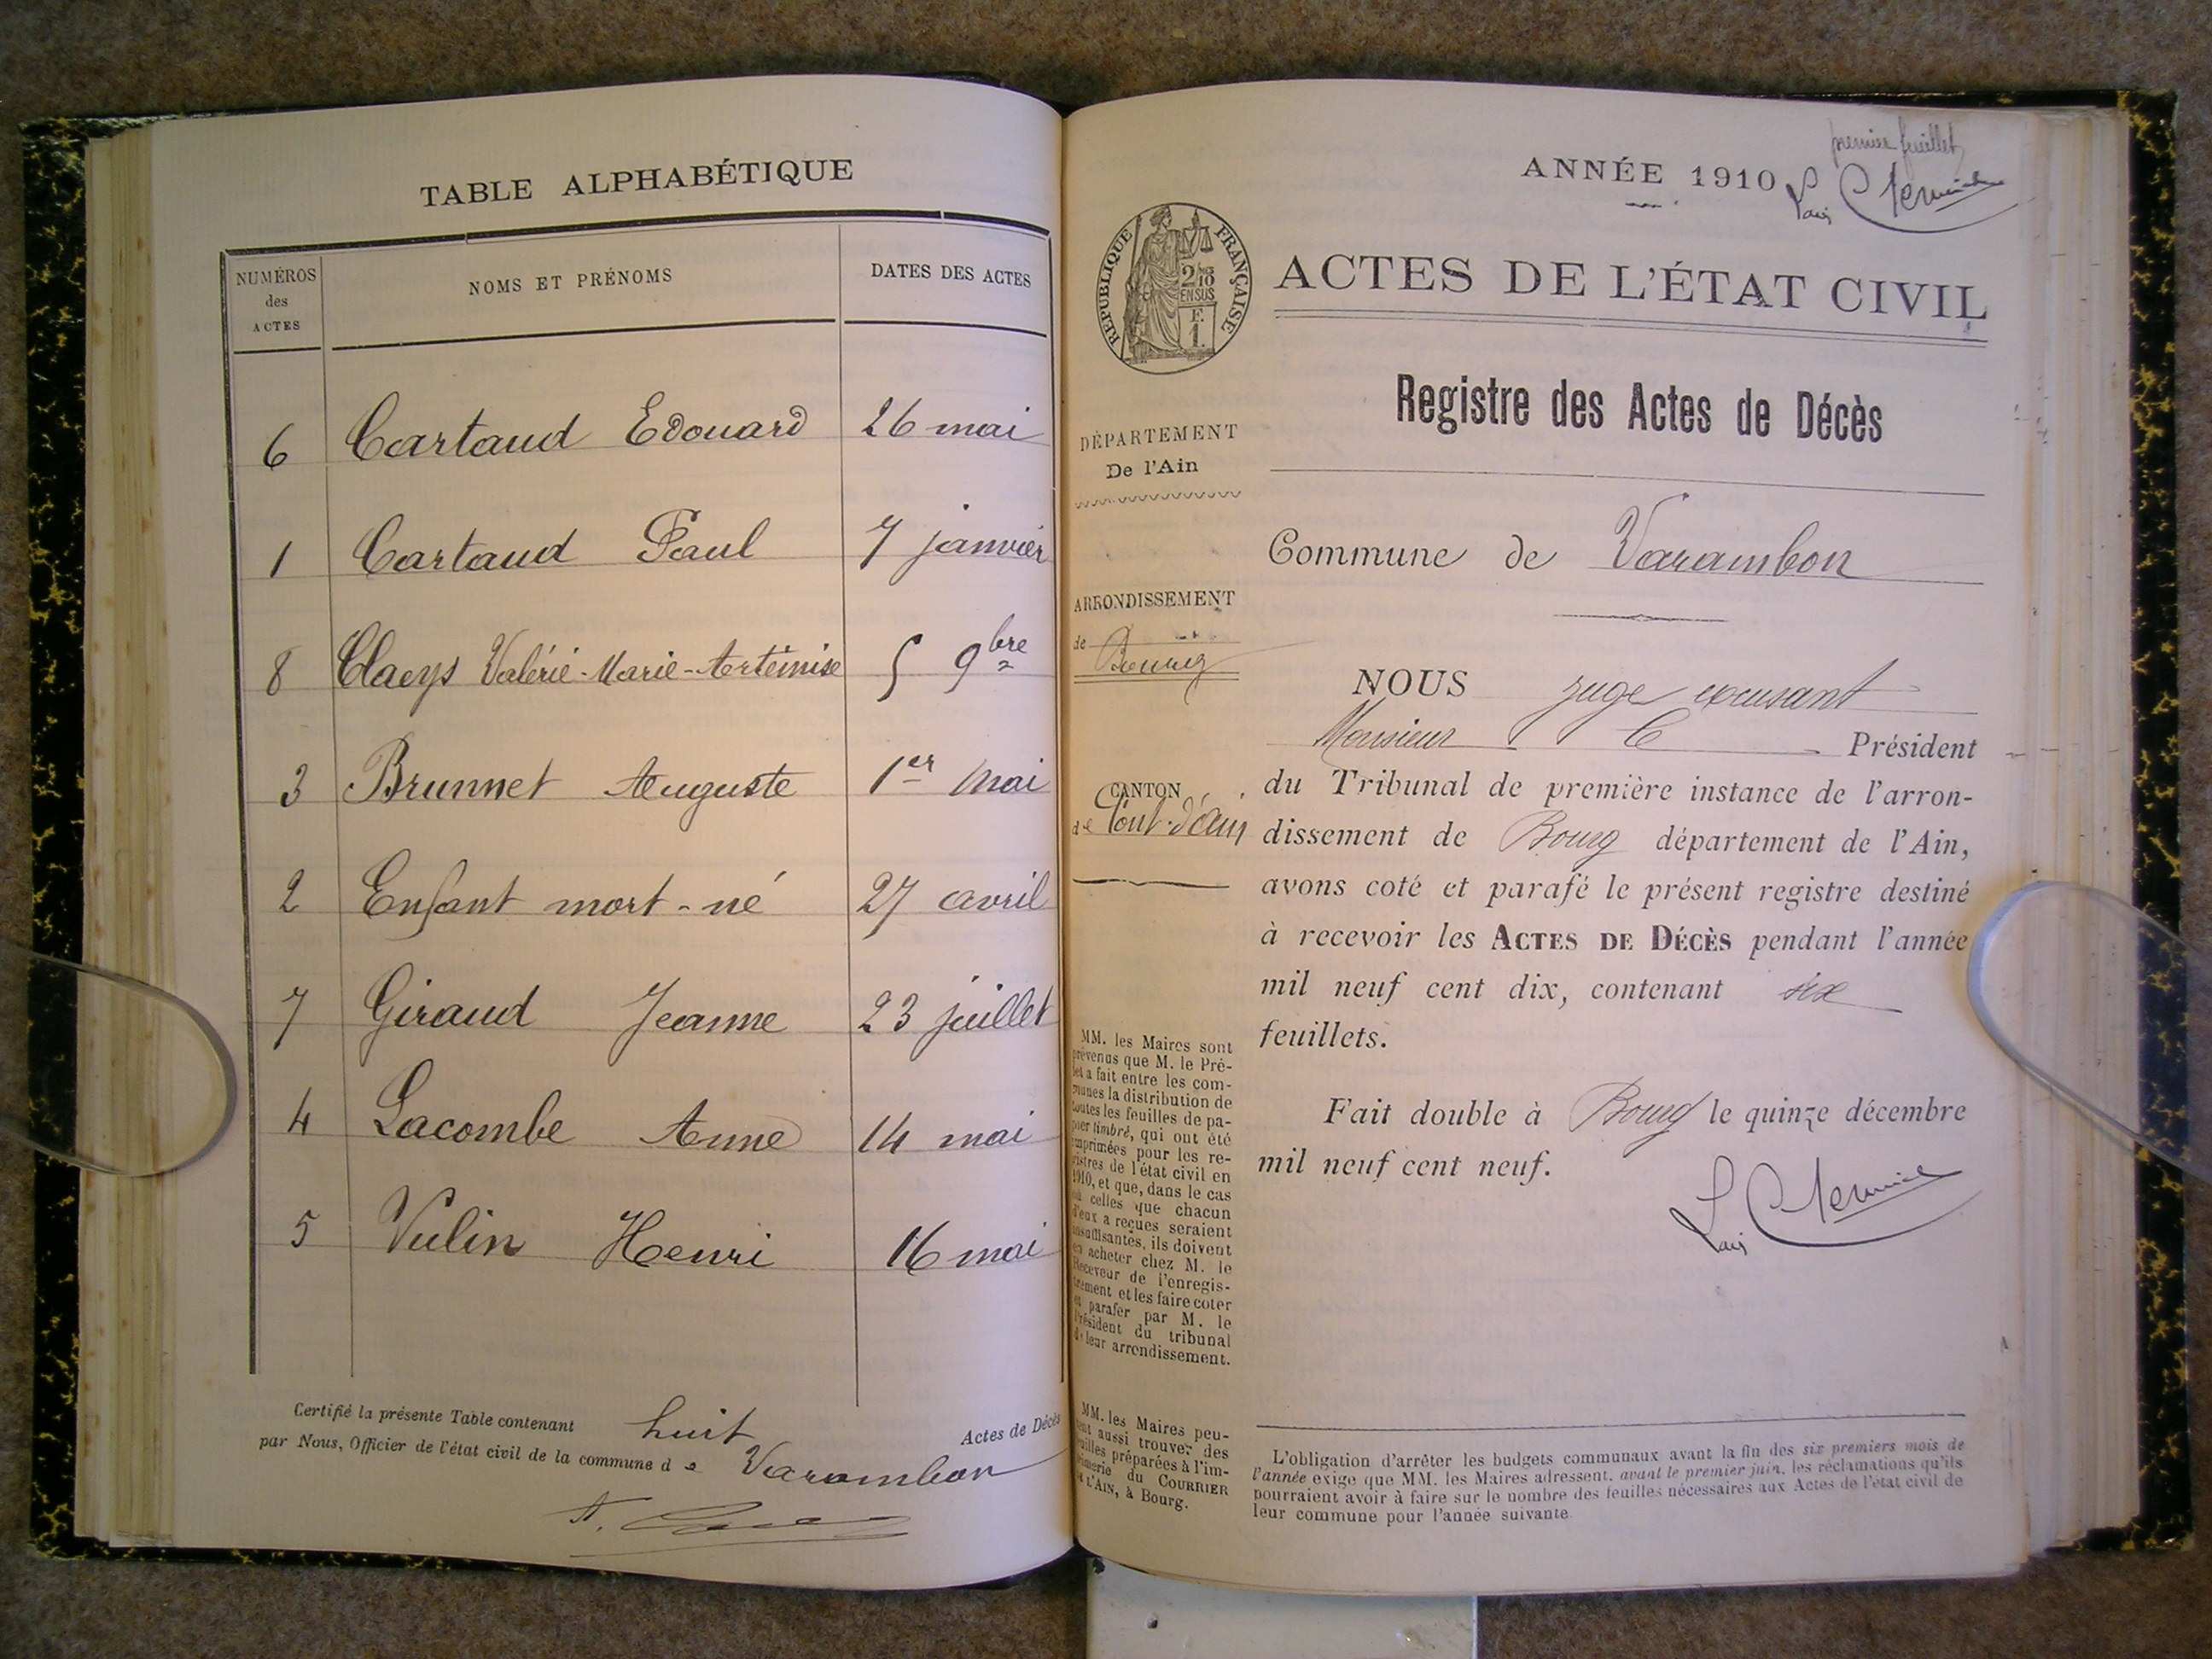 TABLE ALPHABÉTIQUE
NUMÉROS
des
ACTES
NOMS ET PRÉNOMS
DATES DES ACTES
6 Cartaud Edouard 26 mai
1 Cartaud Paul 7 janvier
8 Claeys Valérie-Marie-Artémise 5 9bre
3 Brunnet Auguste 1er mai
2 Enfant mort-né 27 avril
7 Giraud Jeanne 23 juillet
4 Lacombe Anne 14 mai
5 Vulin Henri 16 mai
Certifié la présente Table contenant huit Actes de Décès
par Nous, Officier de l'état civil de la commune de Varambon
premier feuillet
ANNÉE 1910
RÉPUBLIQUE FRANÇAISE
2/10
EN SUS
F.
1.
ACTES DE L'ÉTAT CIVIL
Registre des Actes de Décès
DÉPARTEMENT
De l'Ain
Commune de Varambon
ARRONDISSEMENT
de Bourg
CANTON
de Pont-d'Ain
NOUS juge excusant
Monsieur le Président
du Tribunal de première instance de l'arron-
dissement de Bourg département de l'Ain,
avons coté et parafé le présent registre destiné
à recevoir les ACTES DE DÉCÈS pendant l'année
mil neuf cent dix, contenant six
feuillets.
Fait double à Bourg le quinze décembre
mil neuf cent neuf.
MM. les Maires sont
prévenus que M. le Pré-
fet a fait entre les com-
munes la distribution de
toutes les feuilles de pa-
pier timbré, qui ont été
imprimées pour les re-
gistres de l'état civil en
1910, et que, dans le cas
où celles que chacun
d'eux a reçues seraient
insuffisantes, ils doivent
en acheter chez M. le
Receveur de l'enregis-
trement et les faire coter
et parafer par M. le
Président du tribunal
de leur arrondissement.
MM. les Maires peu-
vent aussi trouver des
feuilles préparées à l'im-
primerie du COURRIER
DE L'AIN, à Bourg.
L'obligation d'arrêter les budgets communaux avant la fin des six premiers mois de
l'année exige que MM. les Maires adressent, avant le premier juin, les réclamations qu'ils
pourraient avoir à faire sur le nombre des feuilles nécessaires aux Actes de l'état civil de
leur commune pour l'année suivante.